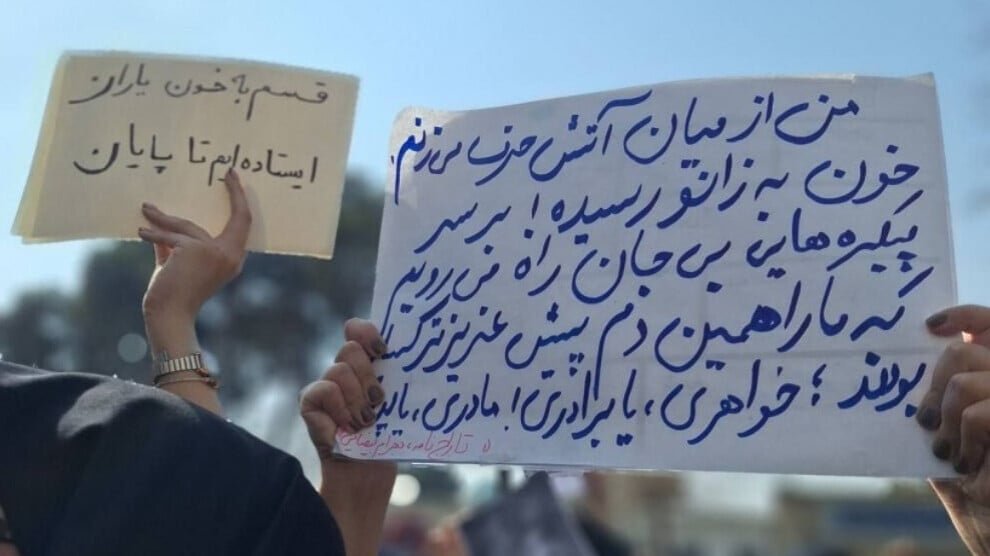 قسم به خون یاران
ایستاده‌ایم تا پایان
من از میان آتش حرف می‌زنم.
خون به زانو رسیده! بر سر
پیکره‌هایی بی‌جان راه می‌رویم
که ما را همین دم پیش عزیزتر کسان
بودند؛ خواهری، یا برادری! مادری، یا پدر
تاراج‌نامه، بهرام بیضایی